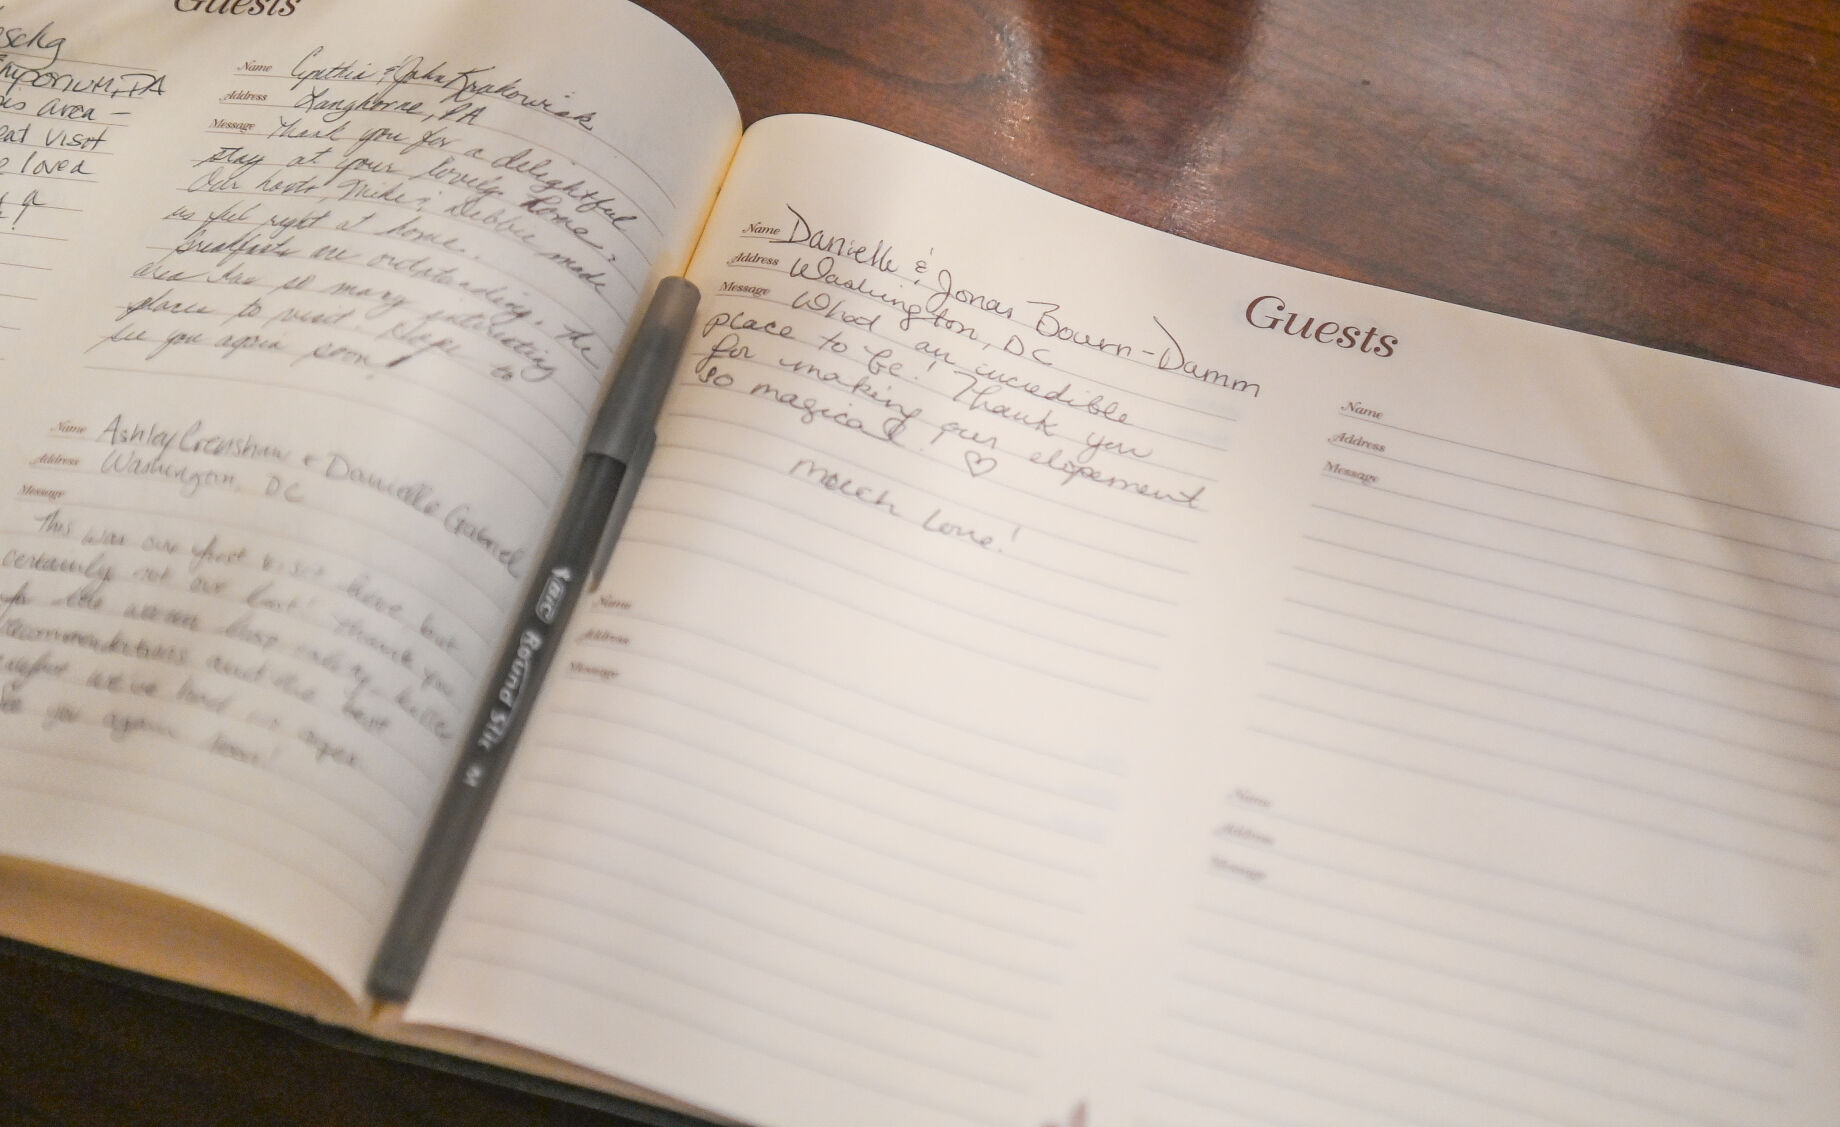 Guests
eschg
mporium, PA
is area -
eat visit
e loved
Name Cynthia & John Krakowiak
Address Langhorne, PA
Message Thank you for a delightful
stay at your lovely home.
Our hosts, Mike & Debbie made
us feel right at home.
Breakfasts are outstanding. The
area has so many interesting
places to visit. Hope to
see you again soon!
Name Ashley Crenshaw & Danielle Gabriel
Address Washington, DC
Message
This was our first visit here but
certainly not our last! Thank you
for the warm
recommendations and the best
we've had in ages
See you again soon!
BIC Round Stic M
Guests
Name Danielle & Jonas Bourn-Damm
Address Washington, DC
Message What an incredible
place to be! Thank you
for making our elopement
so magical. ♡
much love!
Name
Address
Message
Name
Address
Message
Name
Address
Message